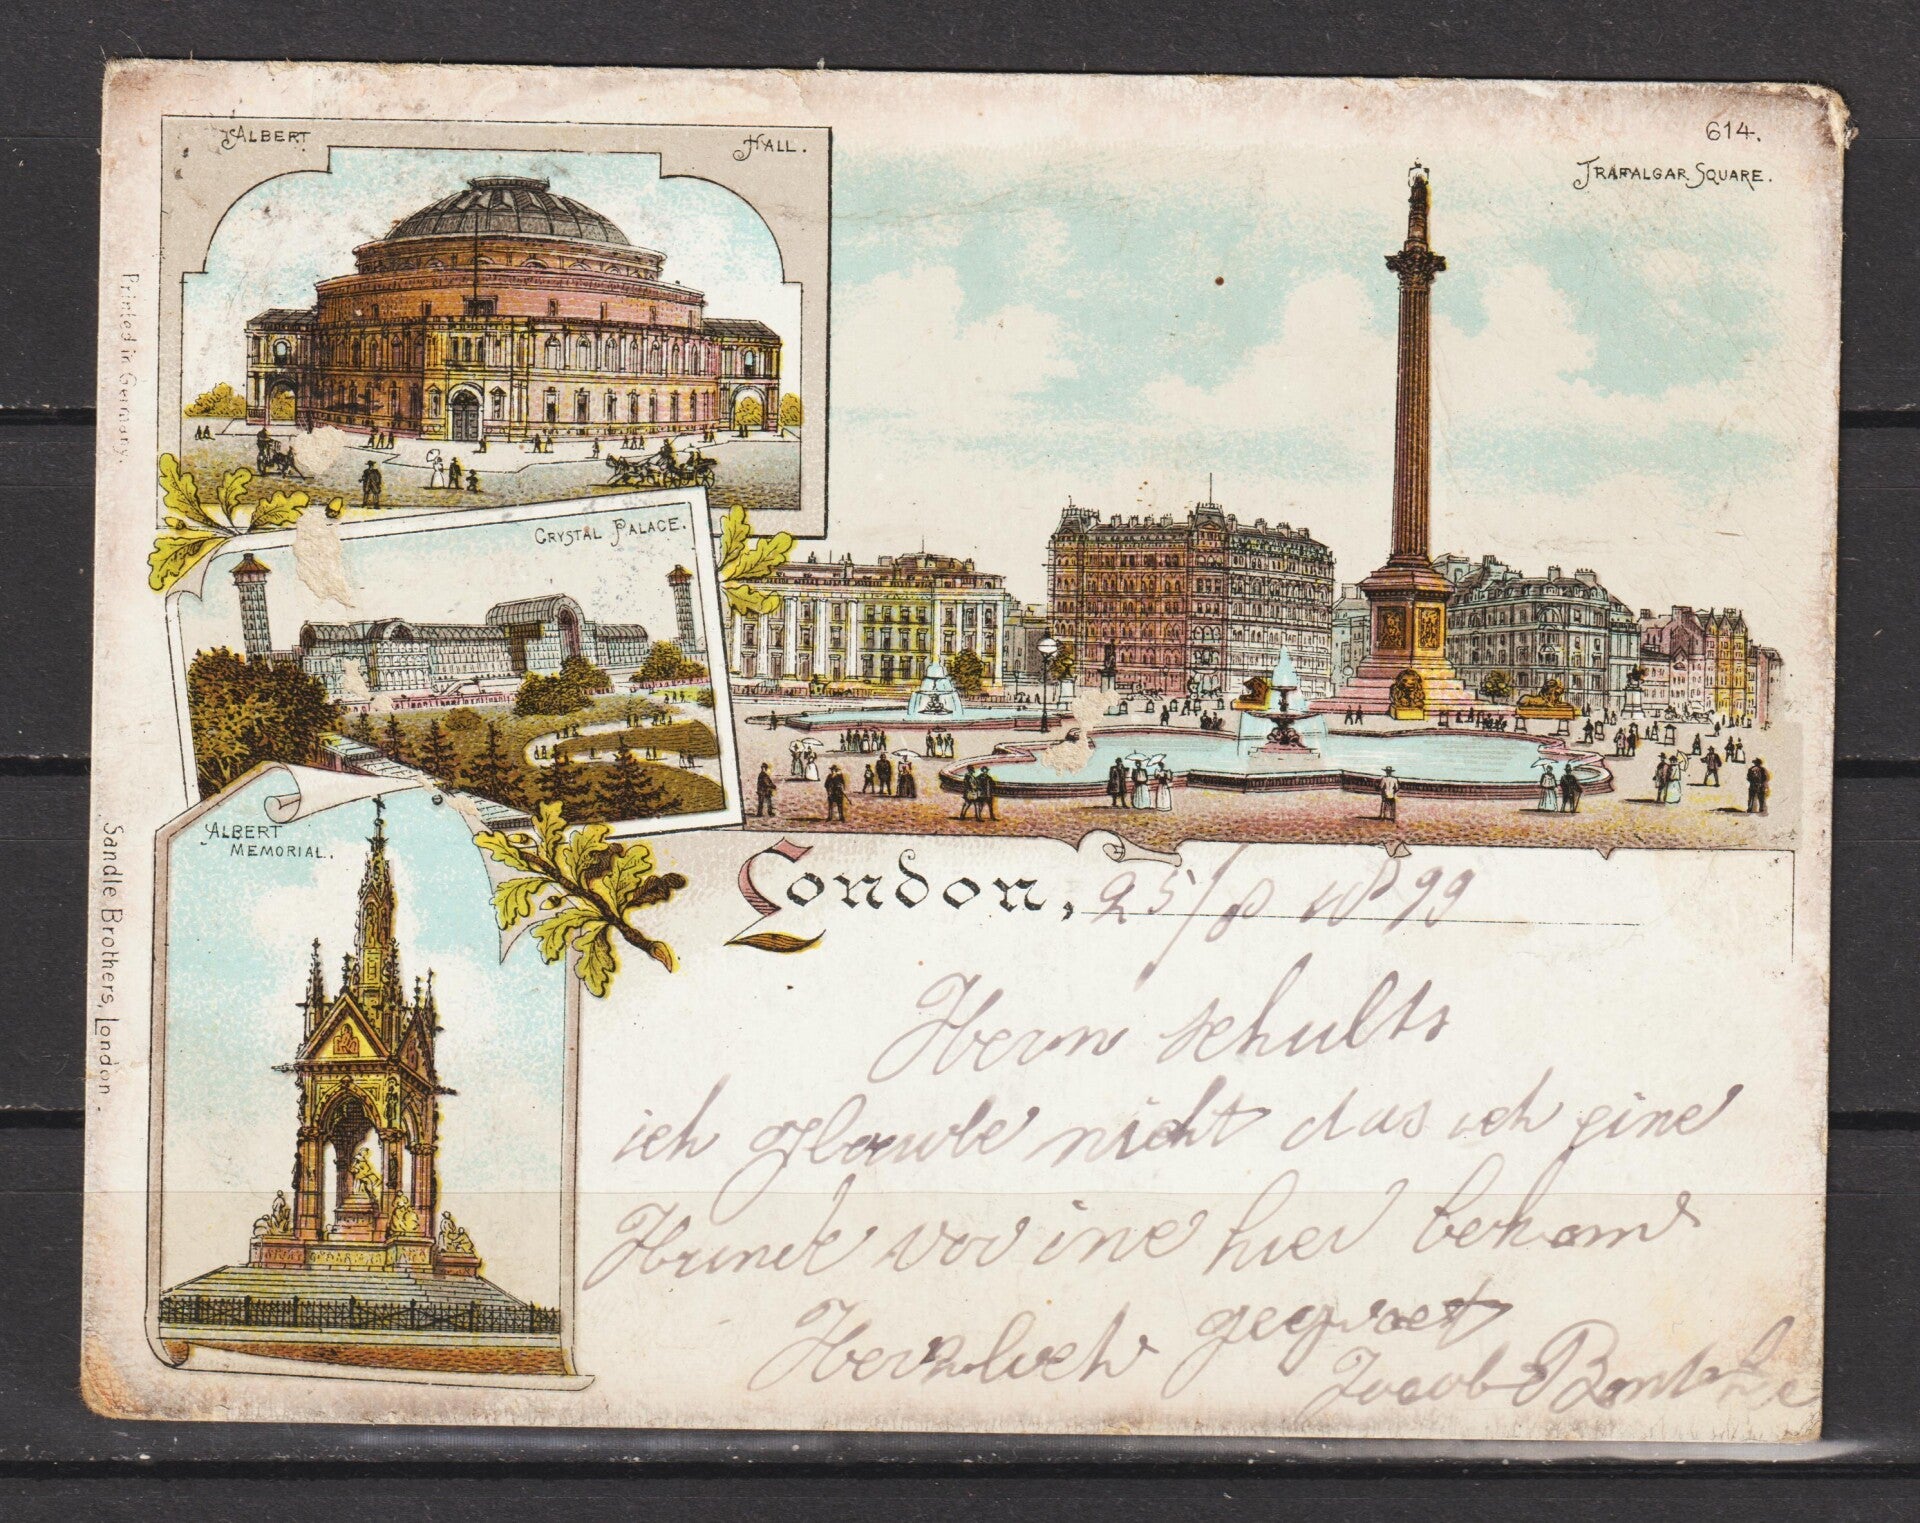 Albert Hall.
614.
Trafalgar Square.
Printed in Germany.
Crystal Palace.
Albert
Memorial.
Sandle Brothers, London.
London, 25/8 99
Herrn schults
ich glaube nicht das ich eine
Hunde hier bekome
Herzlich gegruet
Jacob